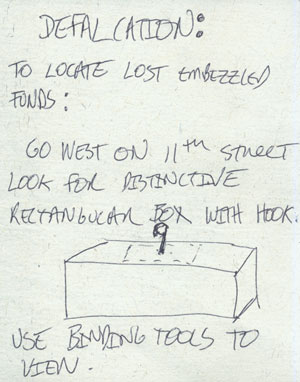 DEFALCATION:
TO LOCATE LOST EMBEZZLED
FUNDS:
GO WEST ON 11TH STREET
LOOK FOR DISTINCTIVE
RECTANGULAR BOX WITH HOOK.
USE BINDING TOOLS TO
VIEW.